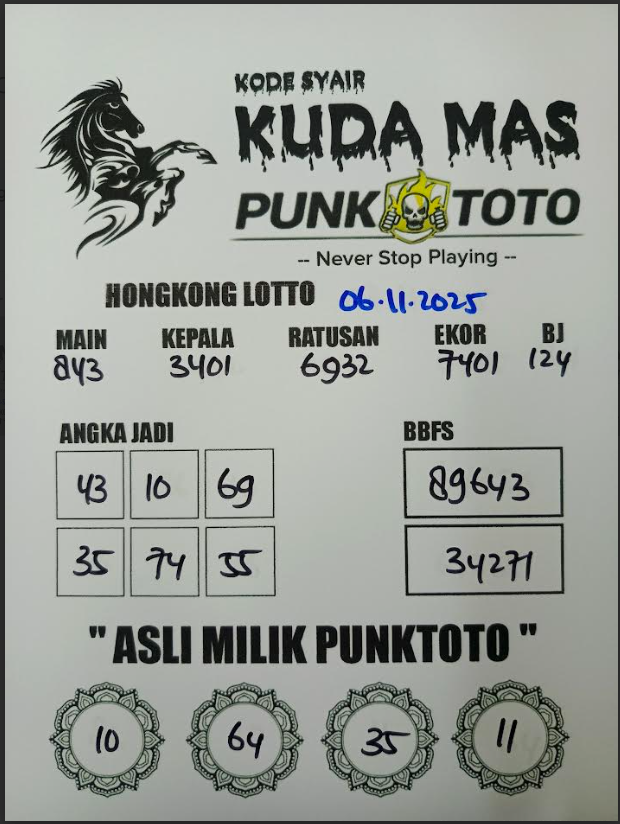 KODE SYAIR
KUDA MAS
PUNK TOTO
-- Never Stop Playing --
HONGKONG LOTTO 06.11.2025
MAIN KEPALA RATUSAN EKOR BJ
843 3401 6932 7401 124
ANGKA JADI BBFS
43 10 69 89643
35 74 55 34271
" ASLI MILIK PUNKTOTO "
10 64 35 11